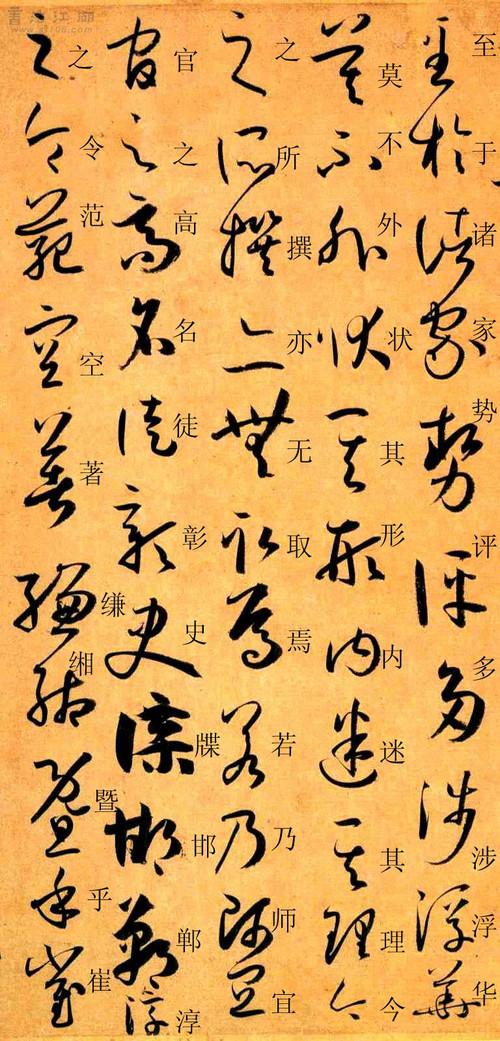 至于诸家势评多涉浮华
莫不外状其形内迷其理今
之所撰亦无取焉若乃师宜
官之高名徒彰史牒邯郸淳
之令范空著缣缃暨乎崔
书法江湖
www.sf108.com